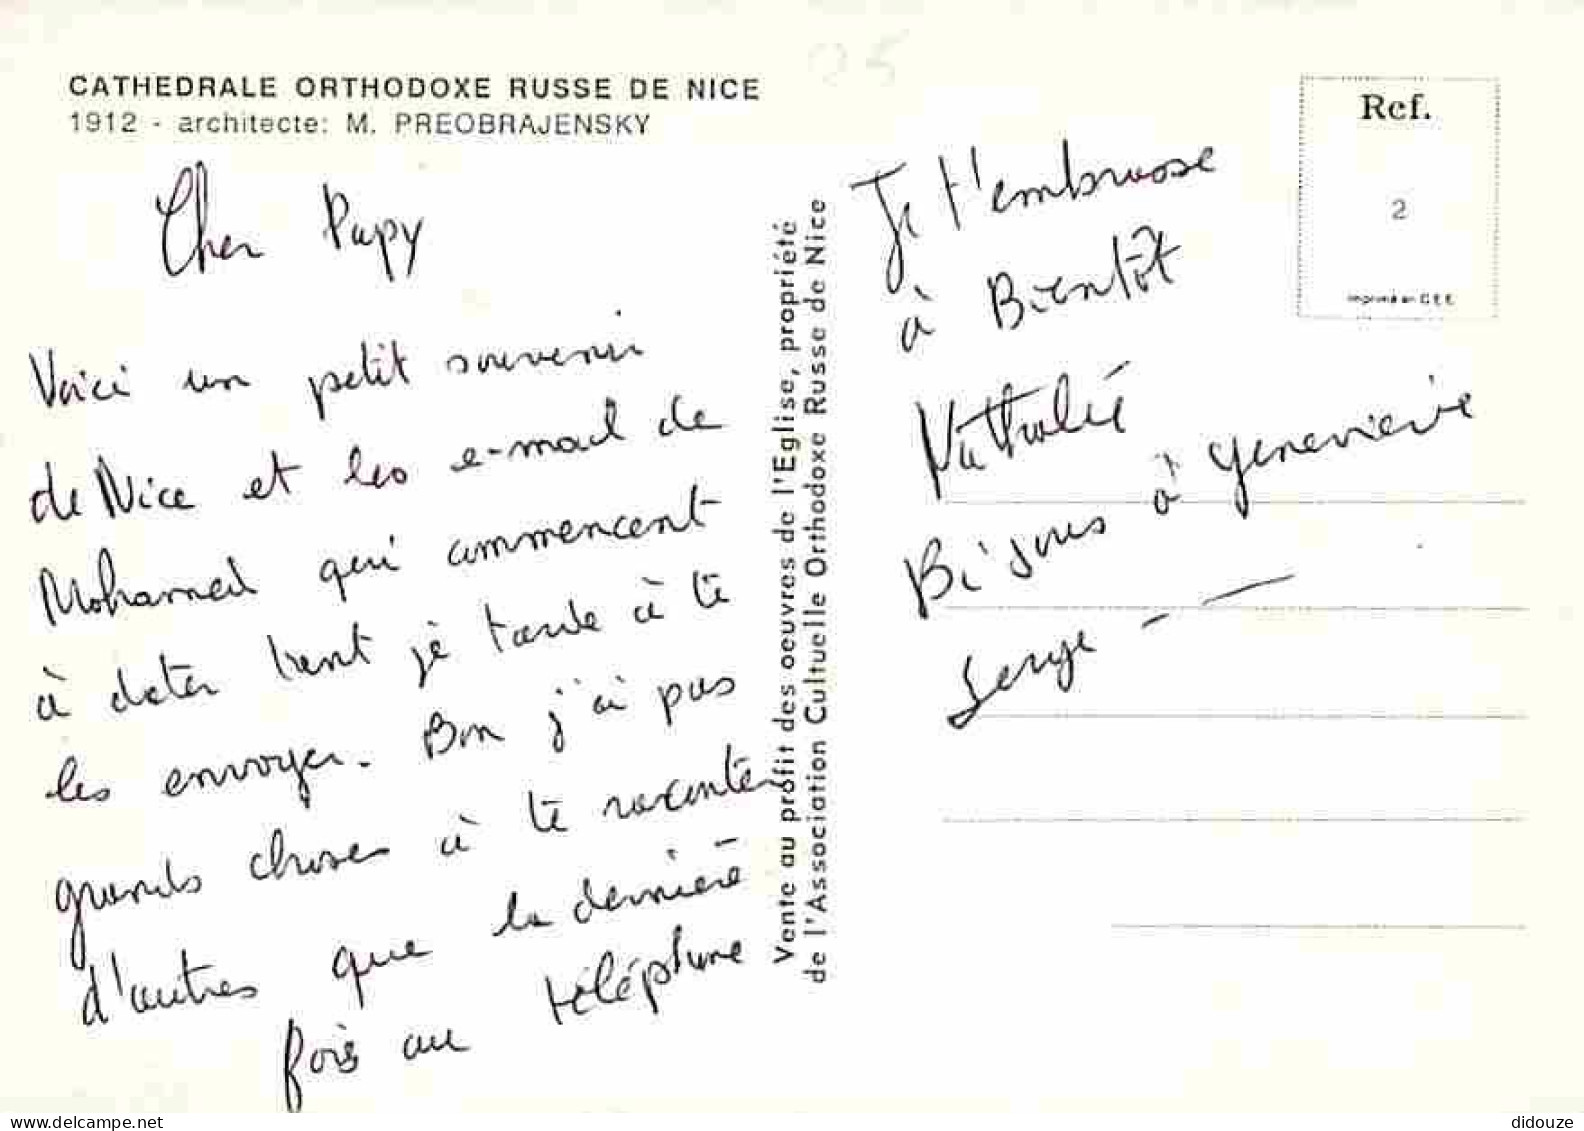 CATHEDRALE ORTHODOXE RUSSE DE NICE
1912 - architecte: M. PREOBRAJENSKY
Cher Papy
Voici un petit souvenir
de Nice et les e-mail de
Mohamed qui commencent
à dater tant je tarde à te
les envoyer. Bon j'ai pas
grands choses à te raconter
d'autres que la dernière
fois au téléphone
Vente au profit des oeuvres de l'Eglise, propriété
de l'Association Cultuelle Orthodoxe Russe de Nice
Ref.
2
Imprimé en CEE
Je t'embrasse
à Bientôt
Nathalie
Bisous à Geneviève
Serge
delcampe.net
didouze